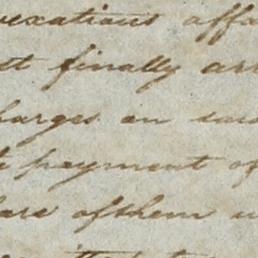 vexatious affa
st finally arr
harges on said
payment of
lars of them w